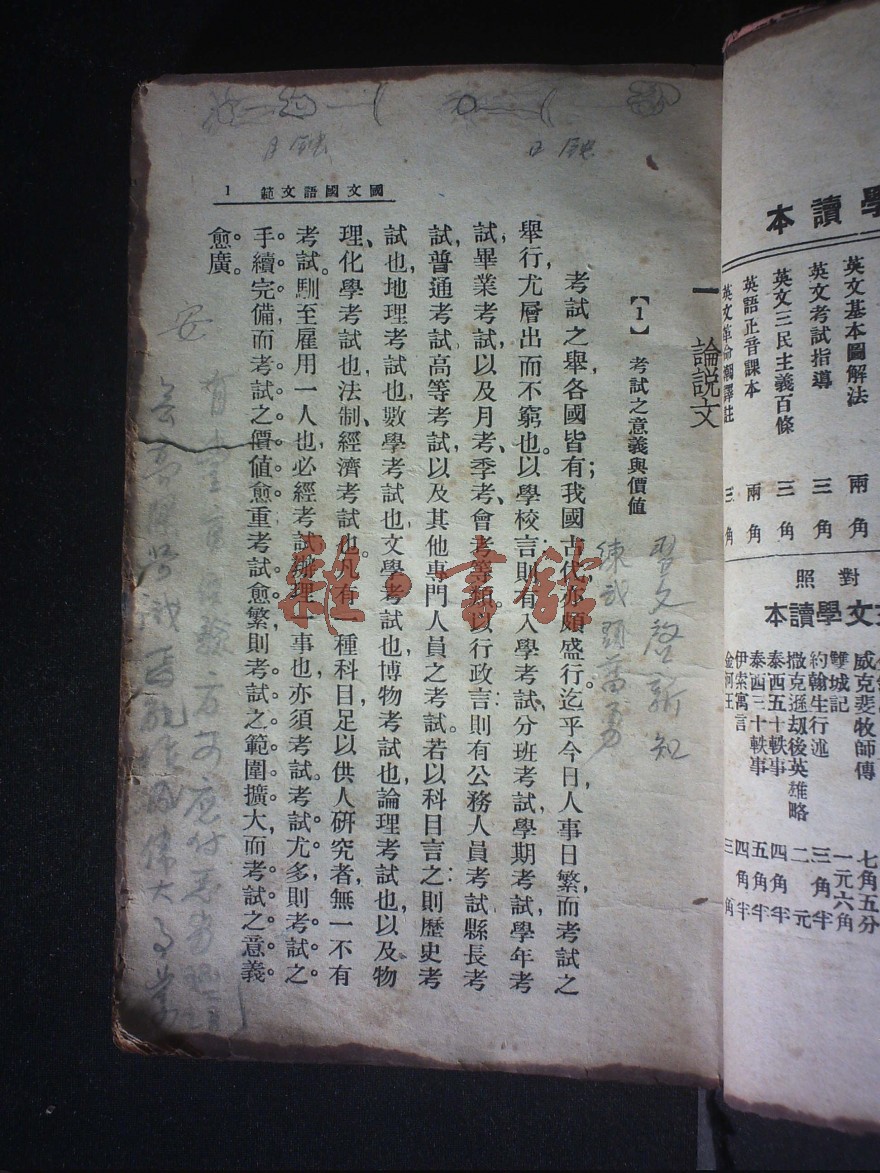 學讀本
英文基本圖解法 兩角
英文考試指導 三角
英文三民主義百條 三角
英語正音課本 兩角
英文革命潮譯註 三角
對照
文學讀本
威克斐牧師傳 七角五分
雙城記 一元六角
約翰生行述 三角半
撒克遜刼後英雄略 二元
泰西五十軼事 四角半
泰西三十軼事 五角半
伊索寓言 四角半
金河王 三角
國文國語文範 1
一 論說文
【1】 考試之意義與價值
考試之舉,各國皆有;我國古代,亦頗盛行。迄乎今日,人事日繁,而考試之
舉行,尤層出而不窮也。以學校言:則有入學考試,分班考試,學期考試,學年考
試,畢業考試,以及月考、季考、會考等類。以行政言:則有公務人員考試,縣長考
試,普通考試,高等考試,以及其他專門人員之考試。若以科目言之:則歷史考
試也,地理考試也,數學考試也,文學考試也,博物考試也,論理考試也,以及物
理、化學考試也,法制、經濟考試也。凡有一種科目,足以供人硏究者,無一不有
考試。馴至雇用一人也,必經考試,辦理一事也,亦須考試。考試尤多,則考試之
手續完備,而考試之價值愈重,考試愈繁,則考試之範圍擴大,而考試之意義
愈廣。
習文啓新知
練武頭當勇
安
日蝕
月蝕
雜·書館